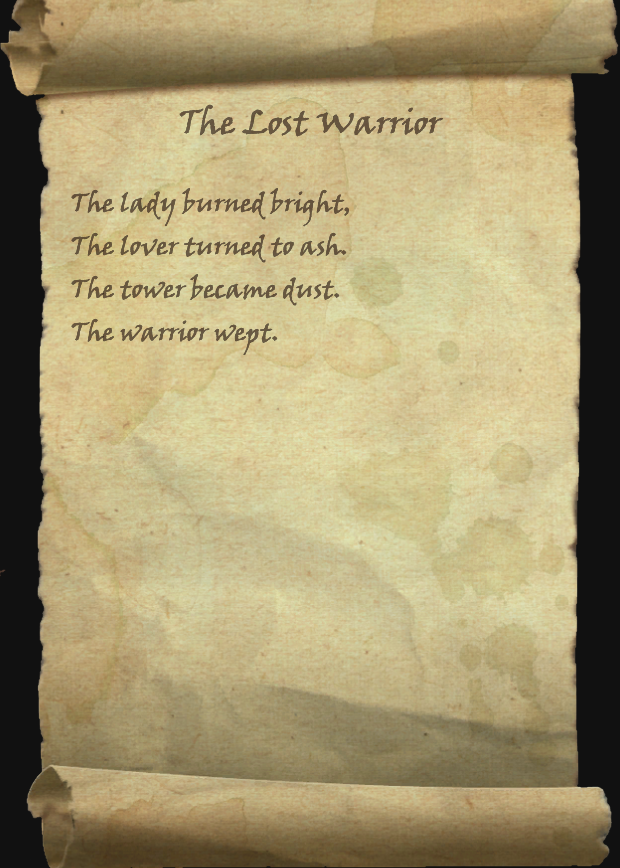 The Lost Warrior
The lady burned bright,
The lover turned to ash.
The tower became dust.
The warrior wept.